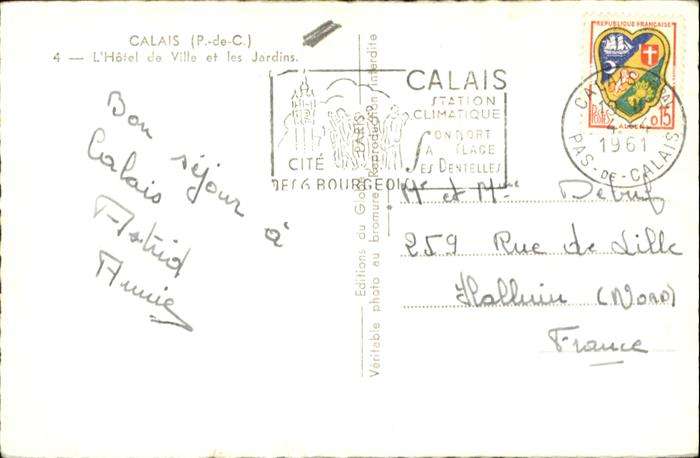 CALAIS (P.-de-C.)
4 — L'Hôtel de Ville et les Jardins.
Bon séjour à
Calais
Astrid
Annie
Editions du Globe, PARIS
Véritable photo au bromure, Reproduction interdite
CITÉ
DES 6 BOURGEOIS
CALAIS
STATION
CLIMATIQUE
SON PORT
SA PLAGE
SES DENTELLES
REPUBLIQUE FRANÇAISE
POSTES
0,15
ALGER
CALAIS
1961
PAS-DE-CALAIS
Mr et Mme Debuf
259 Rue de Lille
Halluin (Nord)
France